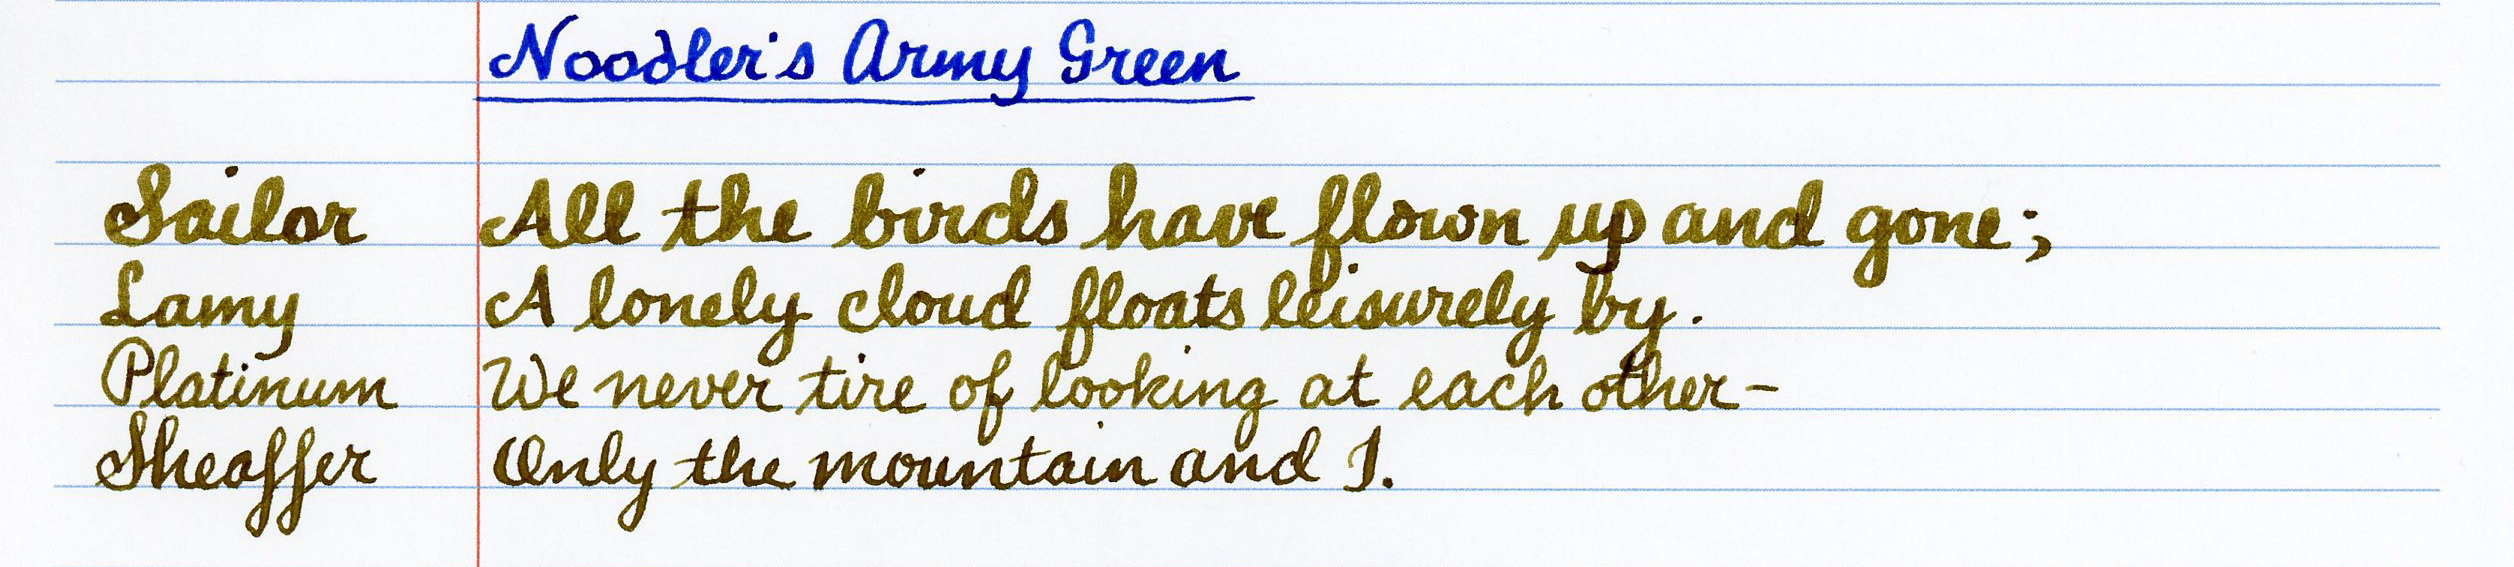 Noodler's Army Green
Sailor All the birds have flown up and gone;
Lamy A lonely cloud floats leisurely by.
Platinum We never tire of looking at each other-
Sheaffer Only the mountain and I.